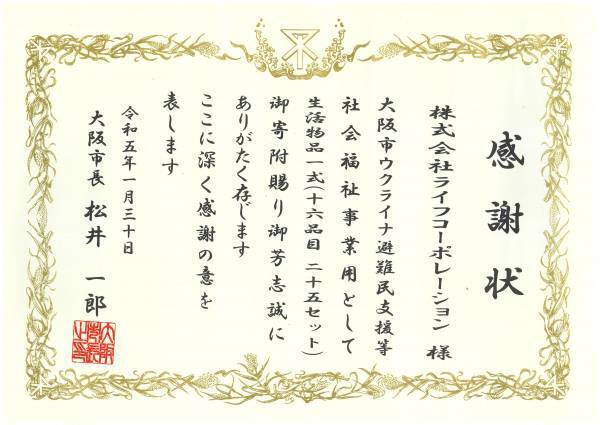 感謝状
株式会社ライフコーポレーション 様
大阪市ウクライナ避難民支援等
社会福祉事業用として
生活物品一式(十六品目 二十五セット)
御寄附賜り御芳志誠に
ありがたく存じます
ここに深く感謝の意を
表します
令和五年一月三十日
大阪市長 松井 一郎